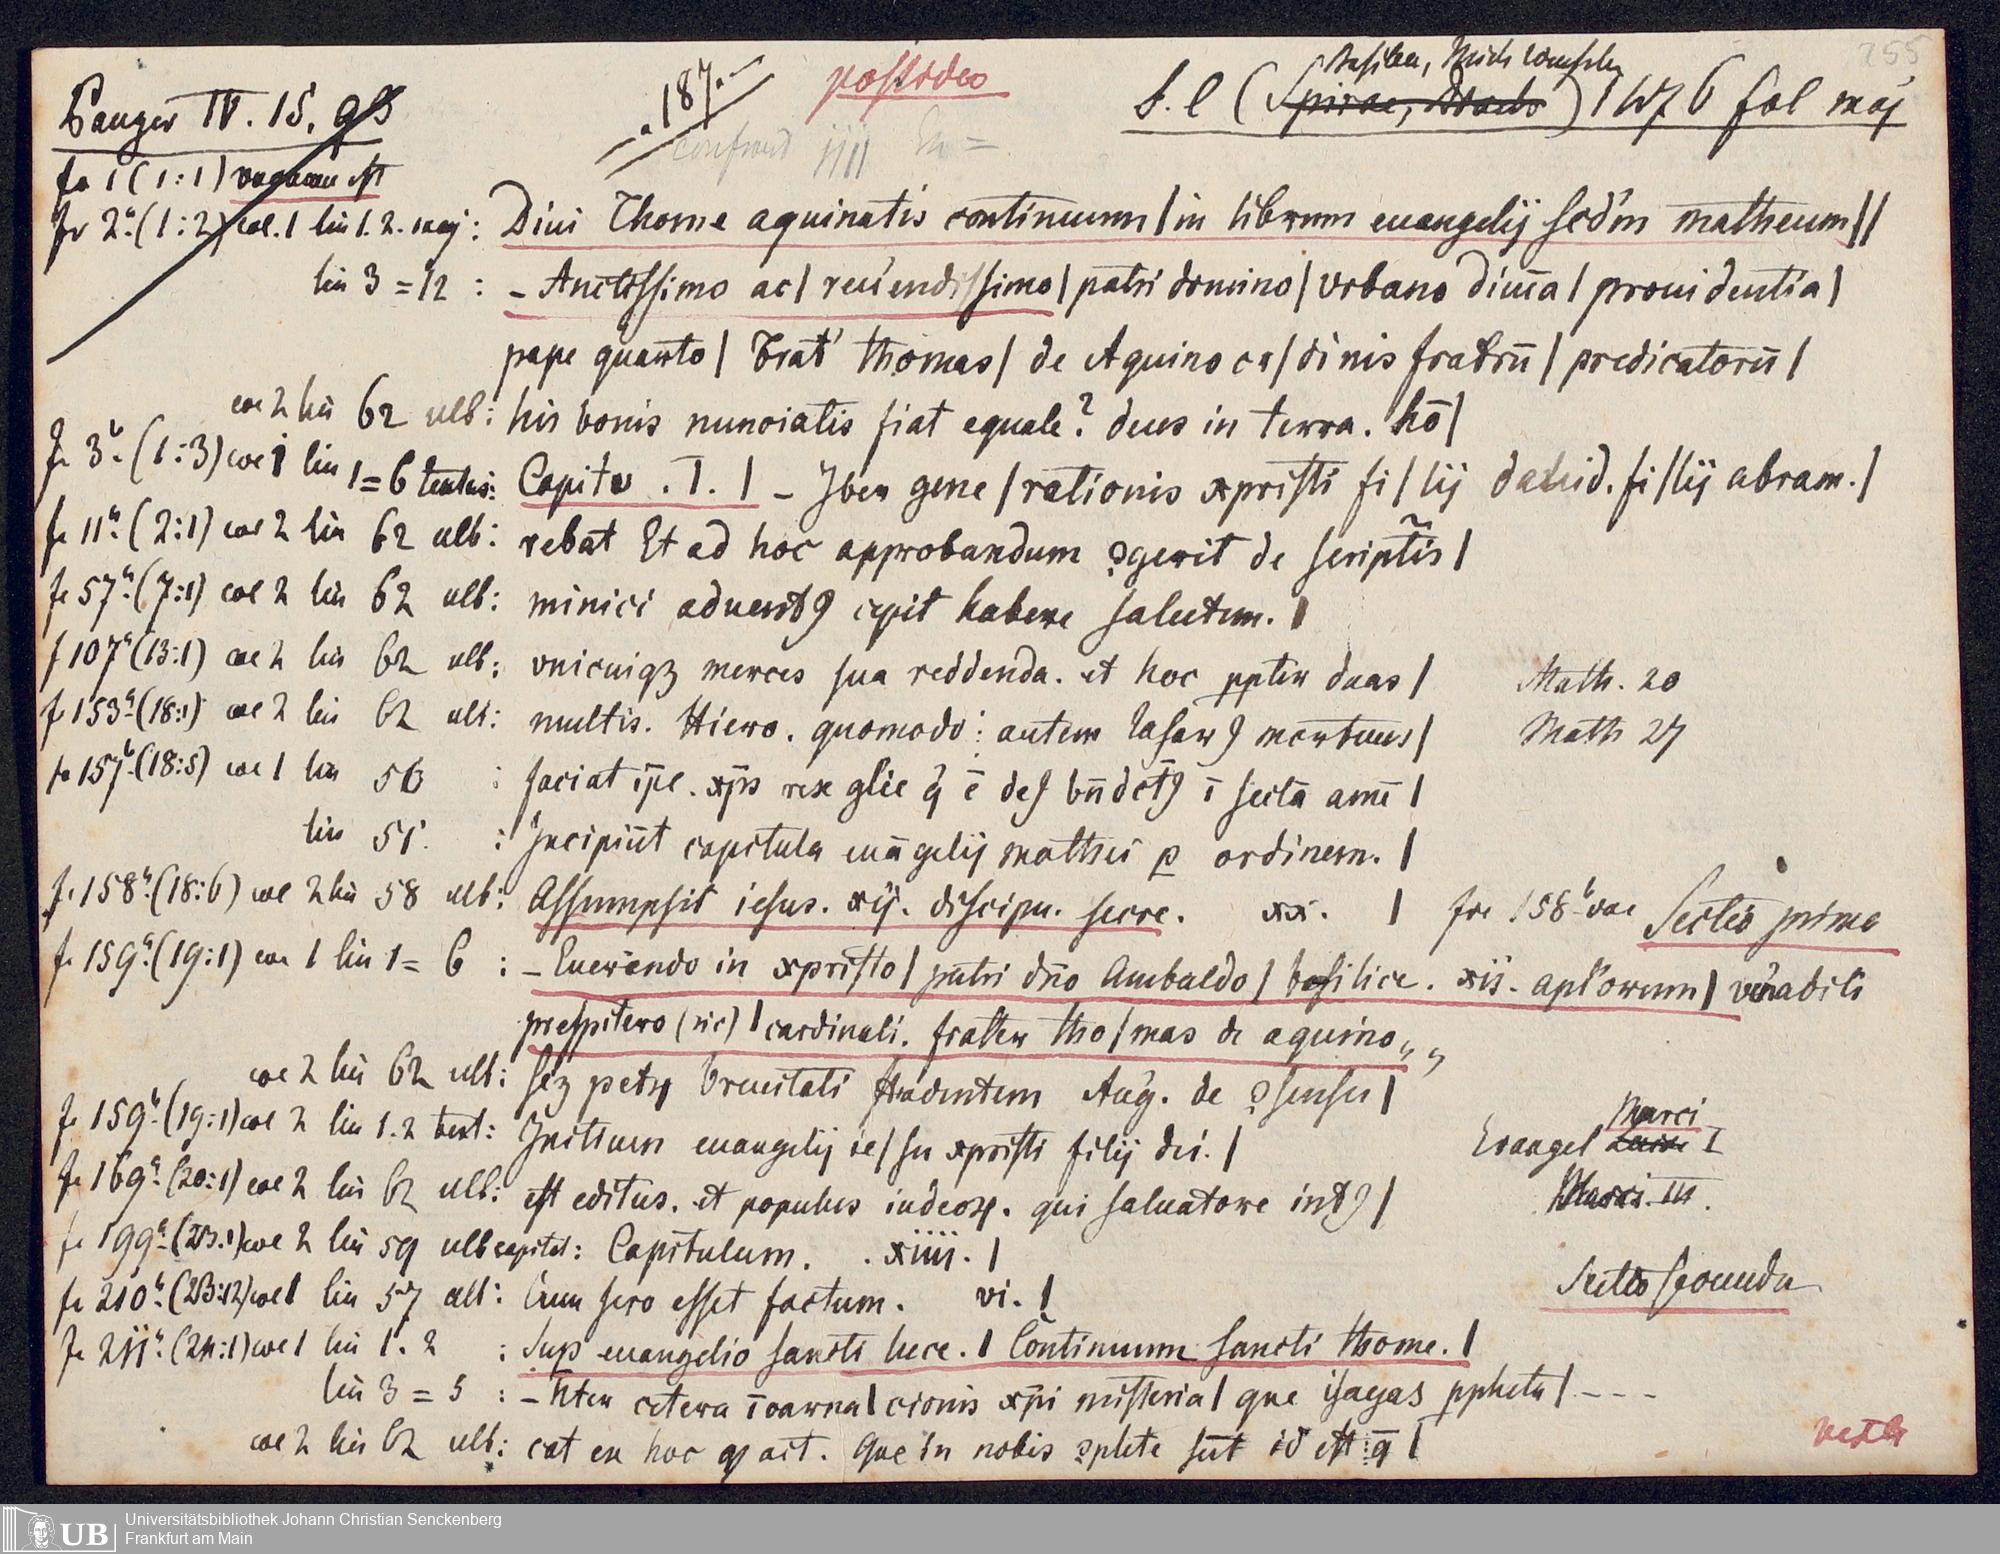 255
Panzer IV. 15. 93
187.
possideo
Basileae, Mich Wenssler
S. l (Spirae, Drach) 1476 fol maj
confront
fo 1 (1:1) vacuum est
fo 2a (1:2) col. 1 lin 1. 2. maj: Diui Thome aquinatis continuum | in librum euangelij scd'm matheum ||
lin 3 = 12 : – Anctissimo ac | reu'endissimo | patri domino | Vrbano diuīa | prouidentia |
pape quarto | Frat' thomas | de Aquino or | dinis fratrū | predicatorū |
col 2 lin 62 ult: his bonis nunciatis fiat equale? deus in terra. hō |
fo 3b (1:3) col 1 lin 1=6 textus: Capitu . I. | – Iber gene | rationis xpristi fi | lij dauid. fi | lij abram. |
fo 11a (2:1) col 2 lin 62 ult: rebat Et ad hoc approbandum ꝯgerit de scriptis |
fo 57a (7:1) col 2 lin 62 ult: minici aduentꝰ cepit habere salutem. |
f 107a (13:1) col 2 lin 62 ult: vnicuiqꝫ merces sua reddenda. et hoc ppter duas | Math. 20
fo 153a (18:1) col 2 lin 62 ult: multis. Hiero. quomodo: autem lasarꝰ mortuus | Math 27
fo 157b (18:5) col 1 lin 56 : faciat ip̄e. xp̄s rex glīe q̇ ē deꝰ bn̄dctꝰ ī sectā amē |
lin 57. : Incipiūt capitula euāgelij mathei p ordinem. |
fo 158b (18:6) col 2 lin 58 ult: Assumpsit iesus. xij. discipu. secre. xx. | fol 158b vac Sectio prima
fo 159a (19:1) col 1 lin 1= 6 : – Euerendo in xpristo | patri dn̄o Anibaldo | basilice . xij. apl'orum | vēn'abili
prespitero (sic) | cardinali. frater tho | mas de aquino „ „
col 2 lin 62 ult: scꝫ petꝝ breuitati studentem Aug. de ꝯsensu |
fo 159b (19:1) col 2 lin 1.2 text: Initium euangelij ie | su xpristi filij dei. | Evangel Luca Marci I
fo 169a (20:1) col 2 lin 62 ult: est editus. et populus iudeoꝝ. qui saluatore intꝰ | Marci. III.
fo 199a (23.1) col 2 lin 59 ult capitel: Capitulum. . xiiii. |
fo 210b (23:12) col 1 lin 57 ult: Cum sero esset factum. vi. | Sectio secunda
fo 211a (24:1) col 1 lin 1. 2 : Sup euangelio sancti luce. | Cōtinuum sancti thome. |
lin 3 = 5 : – Nter cetera īcarna | cionis xp̄i misteria | que isayas ppheta | - - - -
col 2 lin 62 ult: cat ex hoc qꝫ ait. Que in nobis ꝯplete sūt id est q̄ |
verte
Universitätsbibliothek Johann Christian Senckenberg
UB
Frankfurt am Main